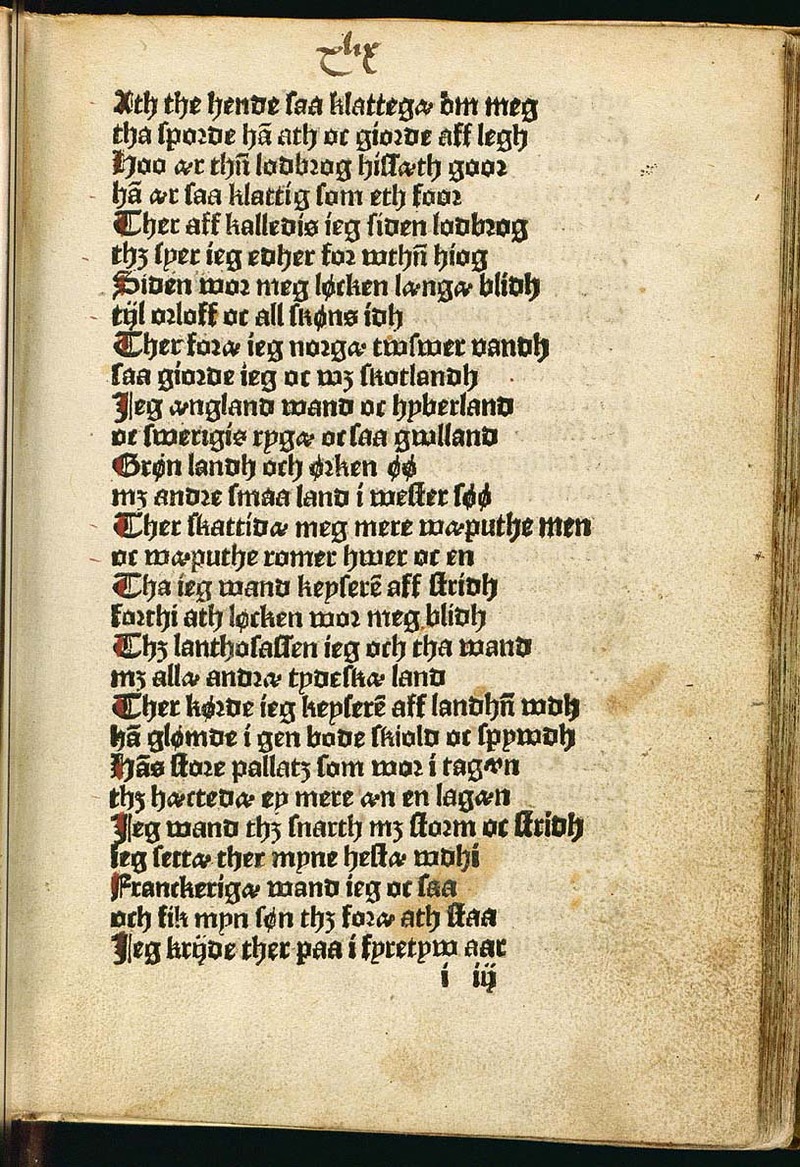 xlix
Ath the hende saa klattegæ om meg
tha sporde hā ath oc giorde aff legh
Hoo ær thn̄ lodbrog hissæth goor
hā ær saa klattig som eth foor
Ther aff kalledis ieg siden lodbrog
thꝫ syer ieg edher for wthn̄ hiog
Siden wor meg løcken længæ blidh
tijl orloff oc all skøns idh
Ther foræ ieg norgæ twswer vandh
saa giorde ieg oc wꝫ skotlandh
Jeg ængland wand oc hyberland
oc swerigis rygæ oc saa gwlland
Grøn landh och ørken øø
mꝫ andre smaa land i wester søø
Ther skattidæ meg mere wæputhe men
oc wæputhe romer hwer oc en
Tha ieg wand keyserē aff stridh
forthi ath løcken wor meg blidh
Thꝫ lanthosassen ieg och tha wand
mꝫ allæ andræ tydeskæ land
Ther kørde ieg keyserē aff landhn̄ wdh
hā glømde i gen bode skiold oc spywdh
Hās store pallatꝫ som wor i tagæn
thꝫ hæctedæ ey mere æn en lagæn
Jeg wand thꝫ snarth mꝫ storm oc stridh
ieg settæ ther myne hestæ wdhi
Franckerigæ wand ieg oc saa
och fik myn søn thꝫ foræ ath staa
Jeg krijde ther paa i fyretyw aar
i iij